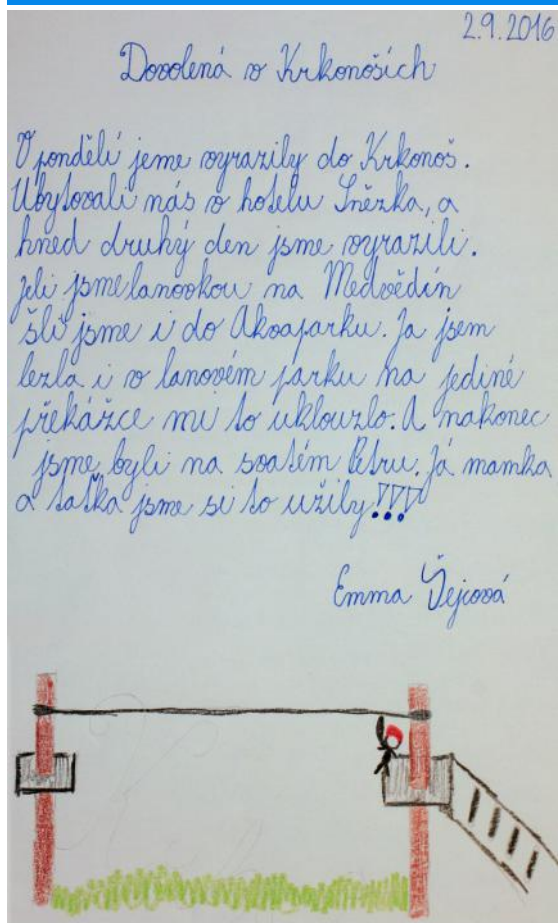 2.9.2016
Dovolená v Krkonoších
V pondělí jeme vyrazily do Krkonoš.
Ubytovali nás v hotelu Sněžka, a
hned druhý den jsme vyrazili.
jeli jsme lanovkou na Medvědín
šli jsme i do Akvaparku. Ja jsem
lezla i v lanovém parku na jediné
překážce mi to uklouzlo. A nakonec
jsme byli na svatém Petru. Já mamka
a taťka jsme si to užily!!!
Emma